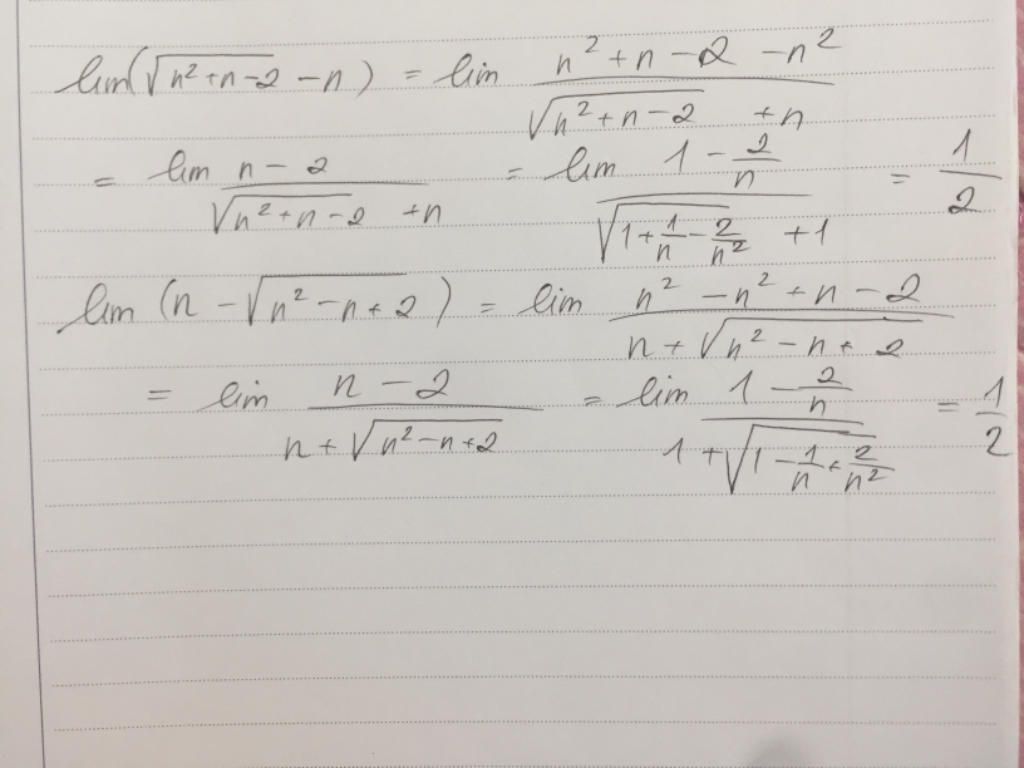 lim(√(n²+n-2) -n) = lim (n²+n-2-n²)/(√(n²+n-2) +n)
= lim (n-2)/(√(n²+n-2) +n) = lim (1-2/n)/(√(1+1/n-2/n²) +1) = 1/2
lim (n-√(n²-n+2)) = lim (n²-n²+n-2)/(n+√(n²-n+2))
= lim (n-2)/(n+√(n²-n+2)) = lim (1-2/n)/(1+√(1-1/n+2/n²)) = 1/2